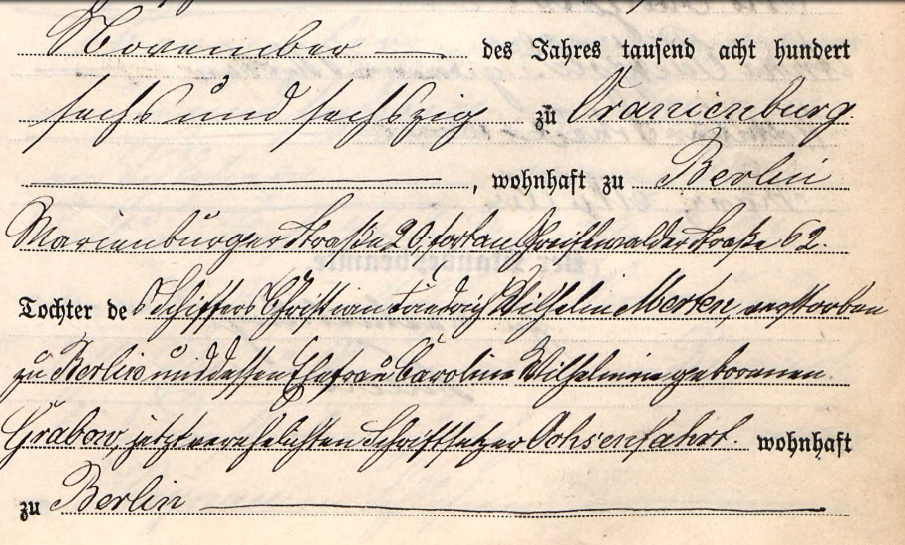 November — des Jahres tausend acht hundert
sechs und sechszig zu Oranienburg
, wohnhaft zu Berlin
Marienburgerstraße 20, fortan Greifswalderstraße 62.
Tochter des Schiffers Christian Friedrich Wilhelm Merker, verstorben
zu Berlin und dessen Ehefrau Caroline Wilhelmine geborenen
Grabow, jetzt verehelichten Schriftsetzer Ochsenfahrt. wohnhaft
zu Berlin